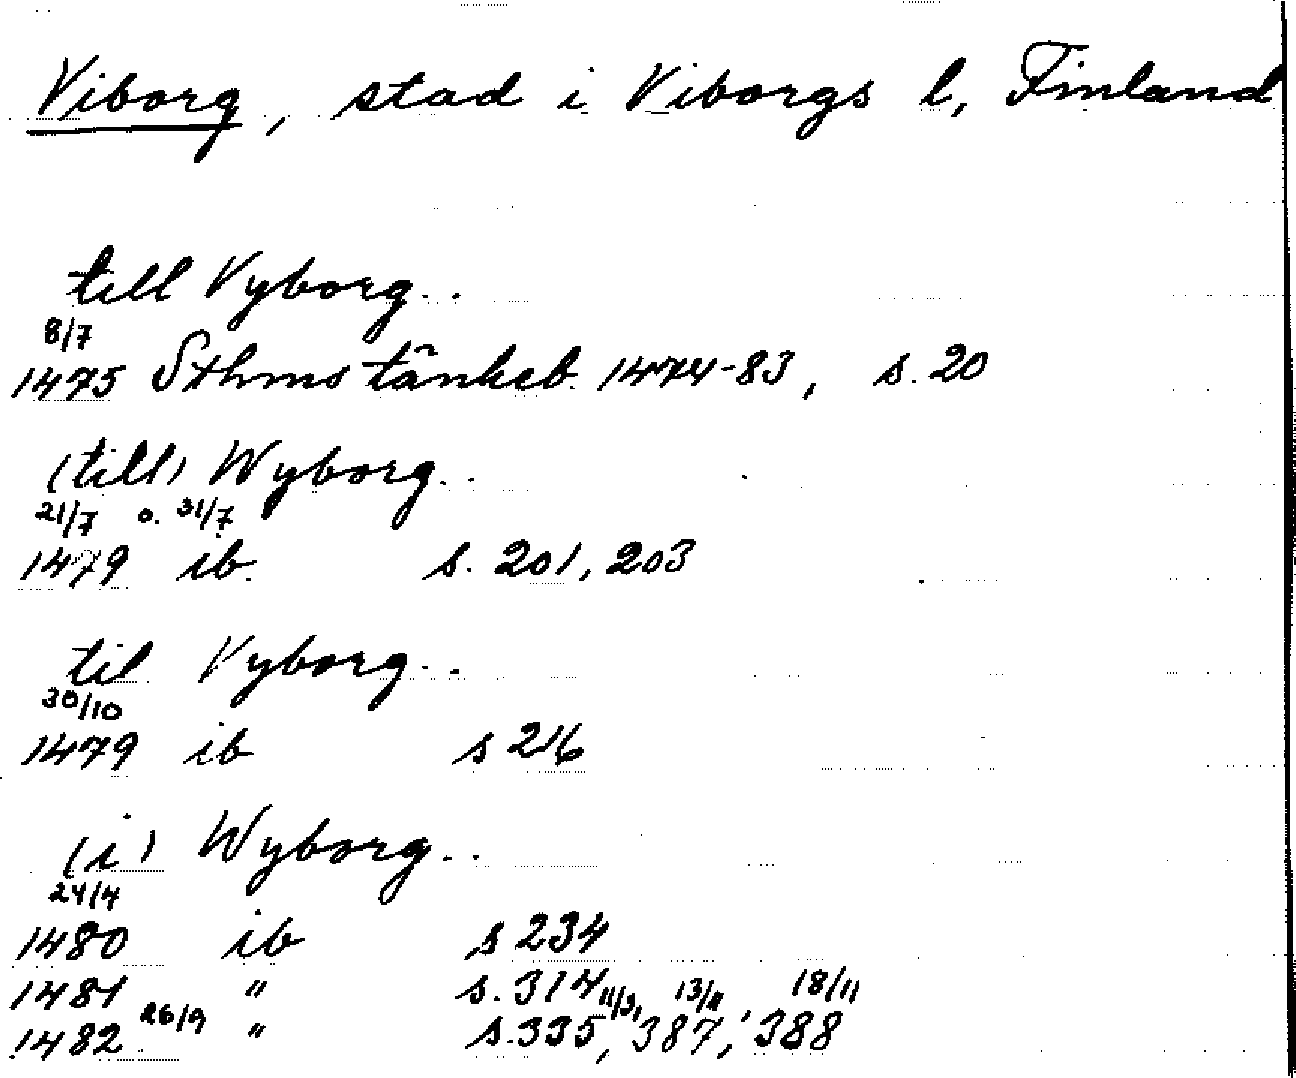 Viborg, stad i Viborgs l, Finland
till Vyborg..
8/7
1475 Sthms tänkeb. 1474-83, s. 20
(till) Wyborg..
21/7 o. 31/7
1479 ib. s. 201, 203
til Vyborg..
30/10
1479 ib s 216
(i) Wyborg..
24/4
1480 ib s 234
1481 " s. 314
26/9 11/3, 13/11, 18/11
1482 " s. 335, 387, 388